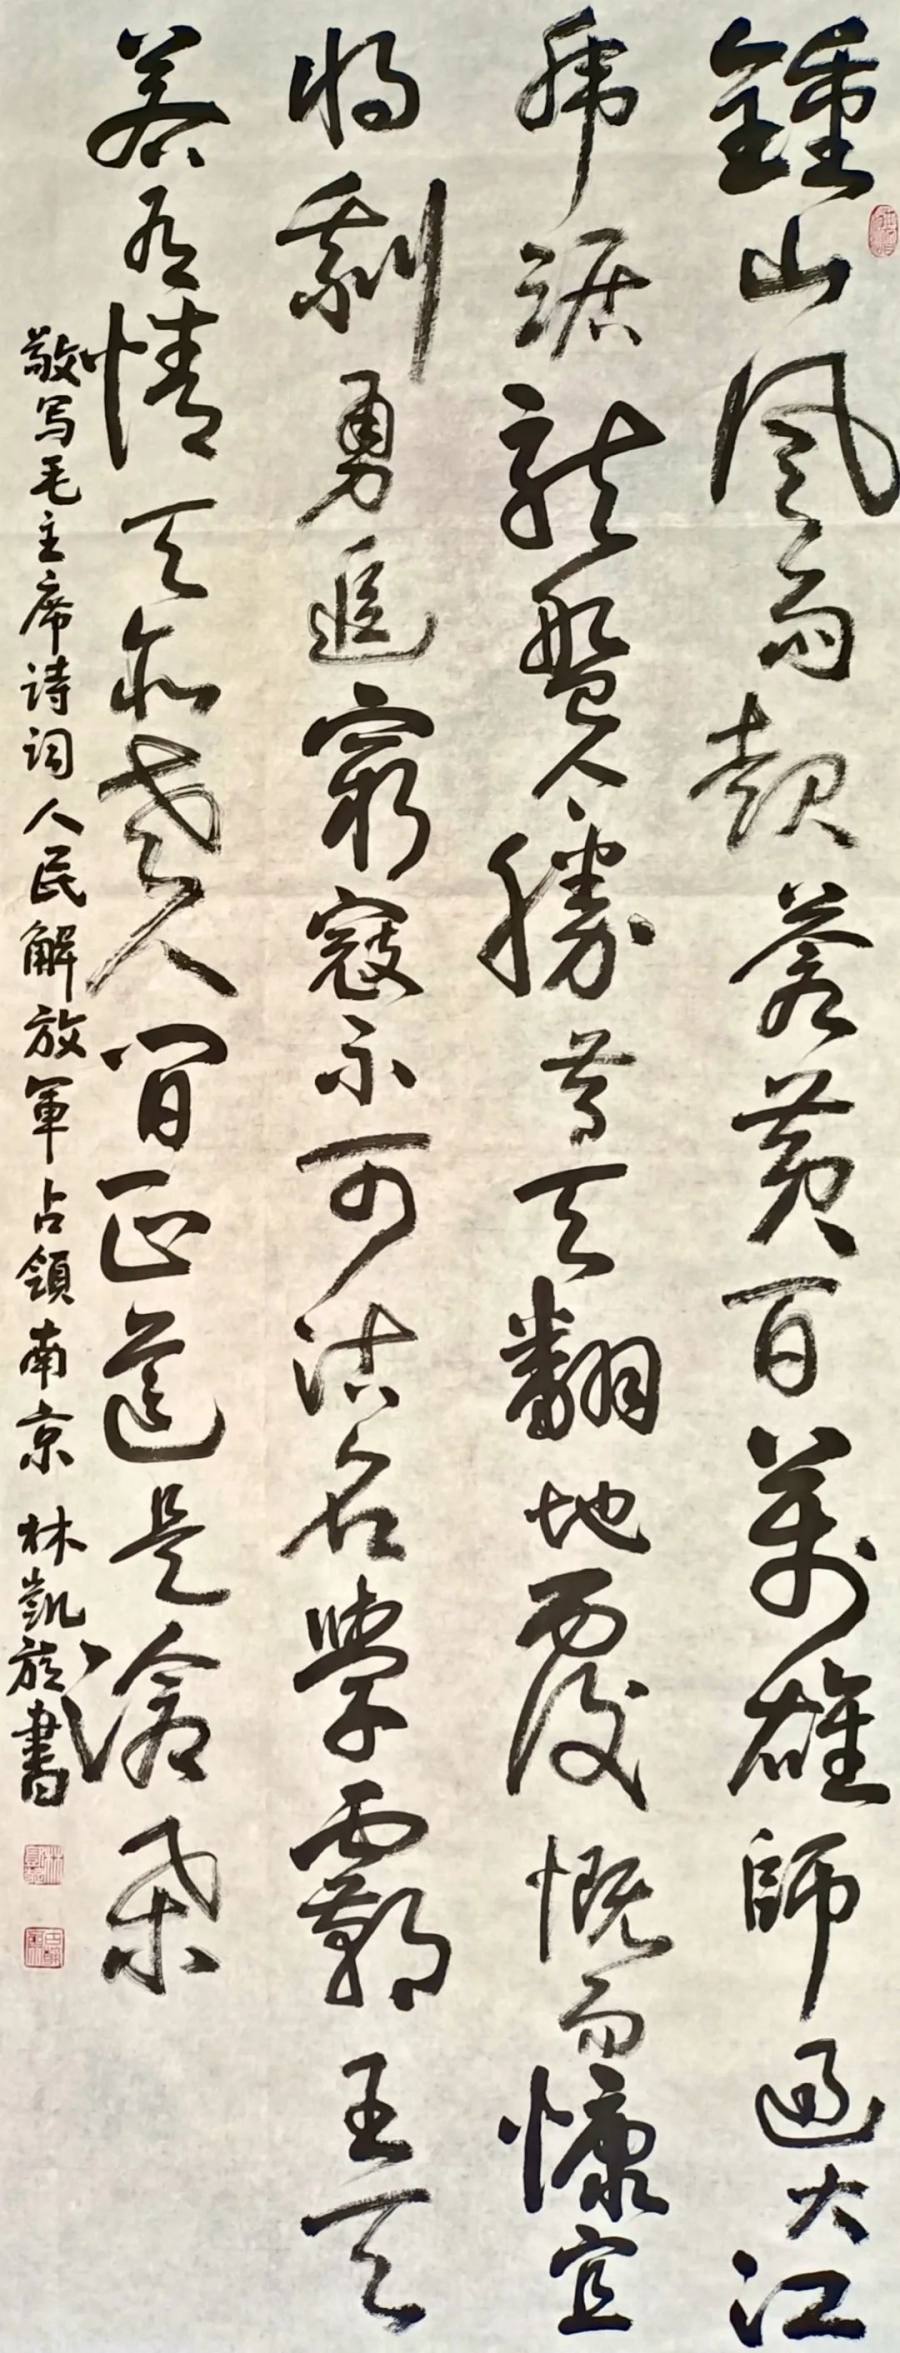 鍾山風雨起蒼黃百萬雄師過大江
虎踞龍盤今勝昔天翻地覆慨而慷宜
將剩勇追窮寇不可沽名學霸王天
若有情天亦老人間正道是滄桑
敬写毛主席诗词人民解放軍占領南京 林凱族書